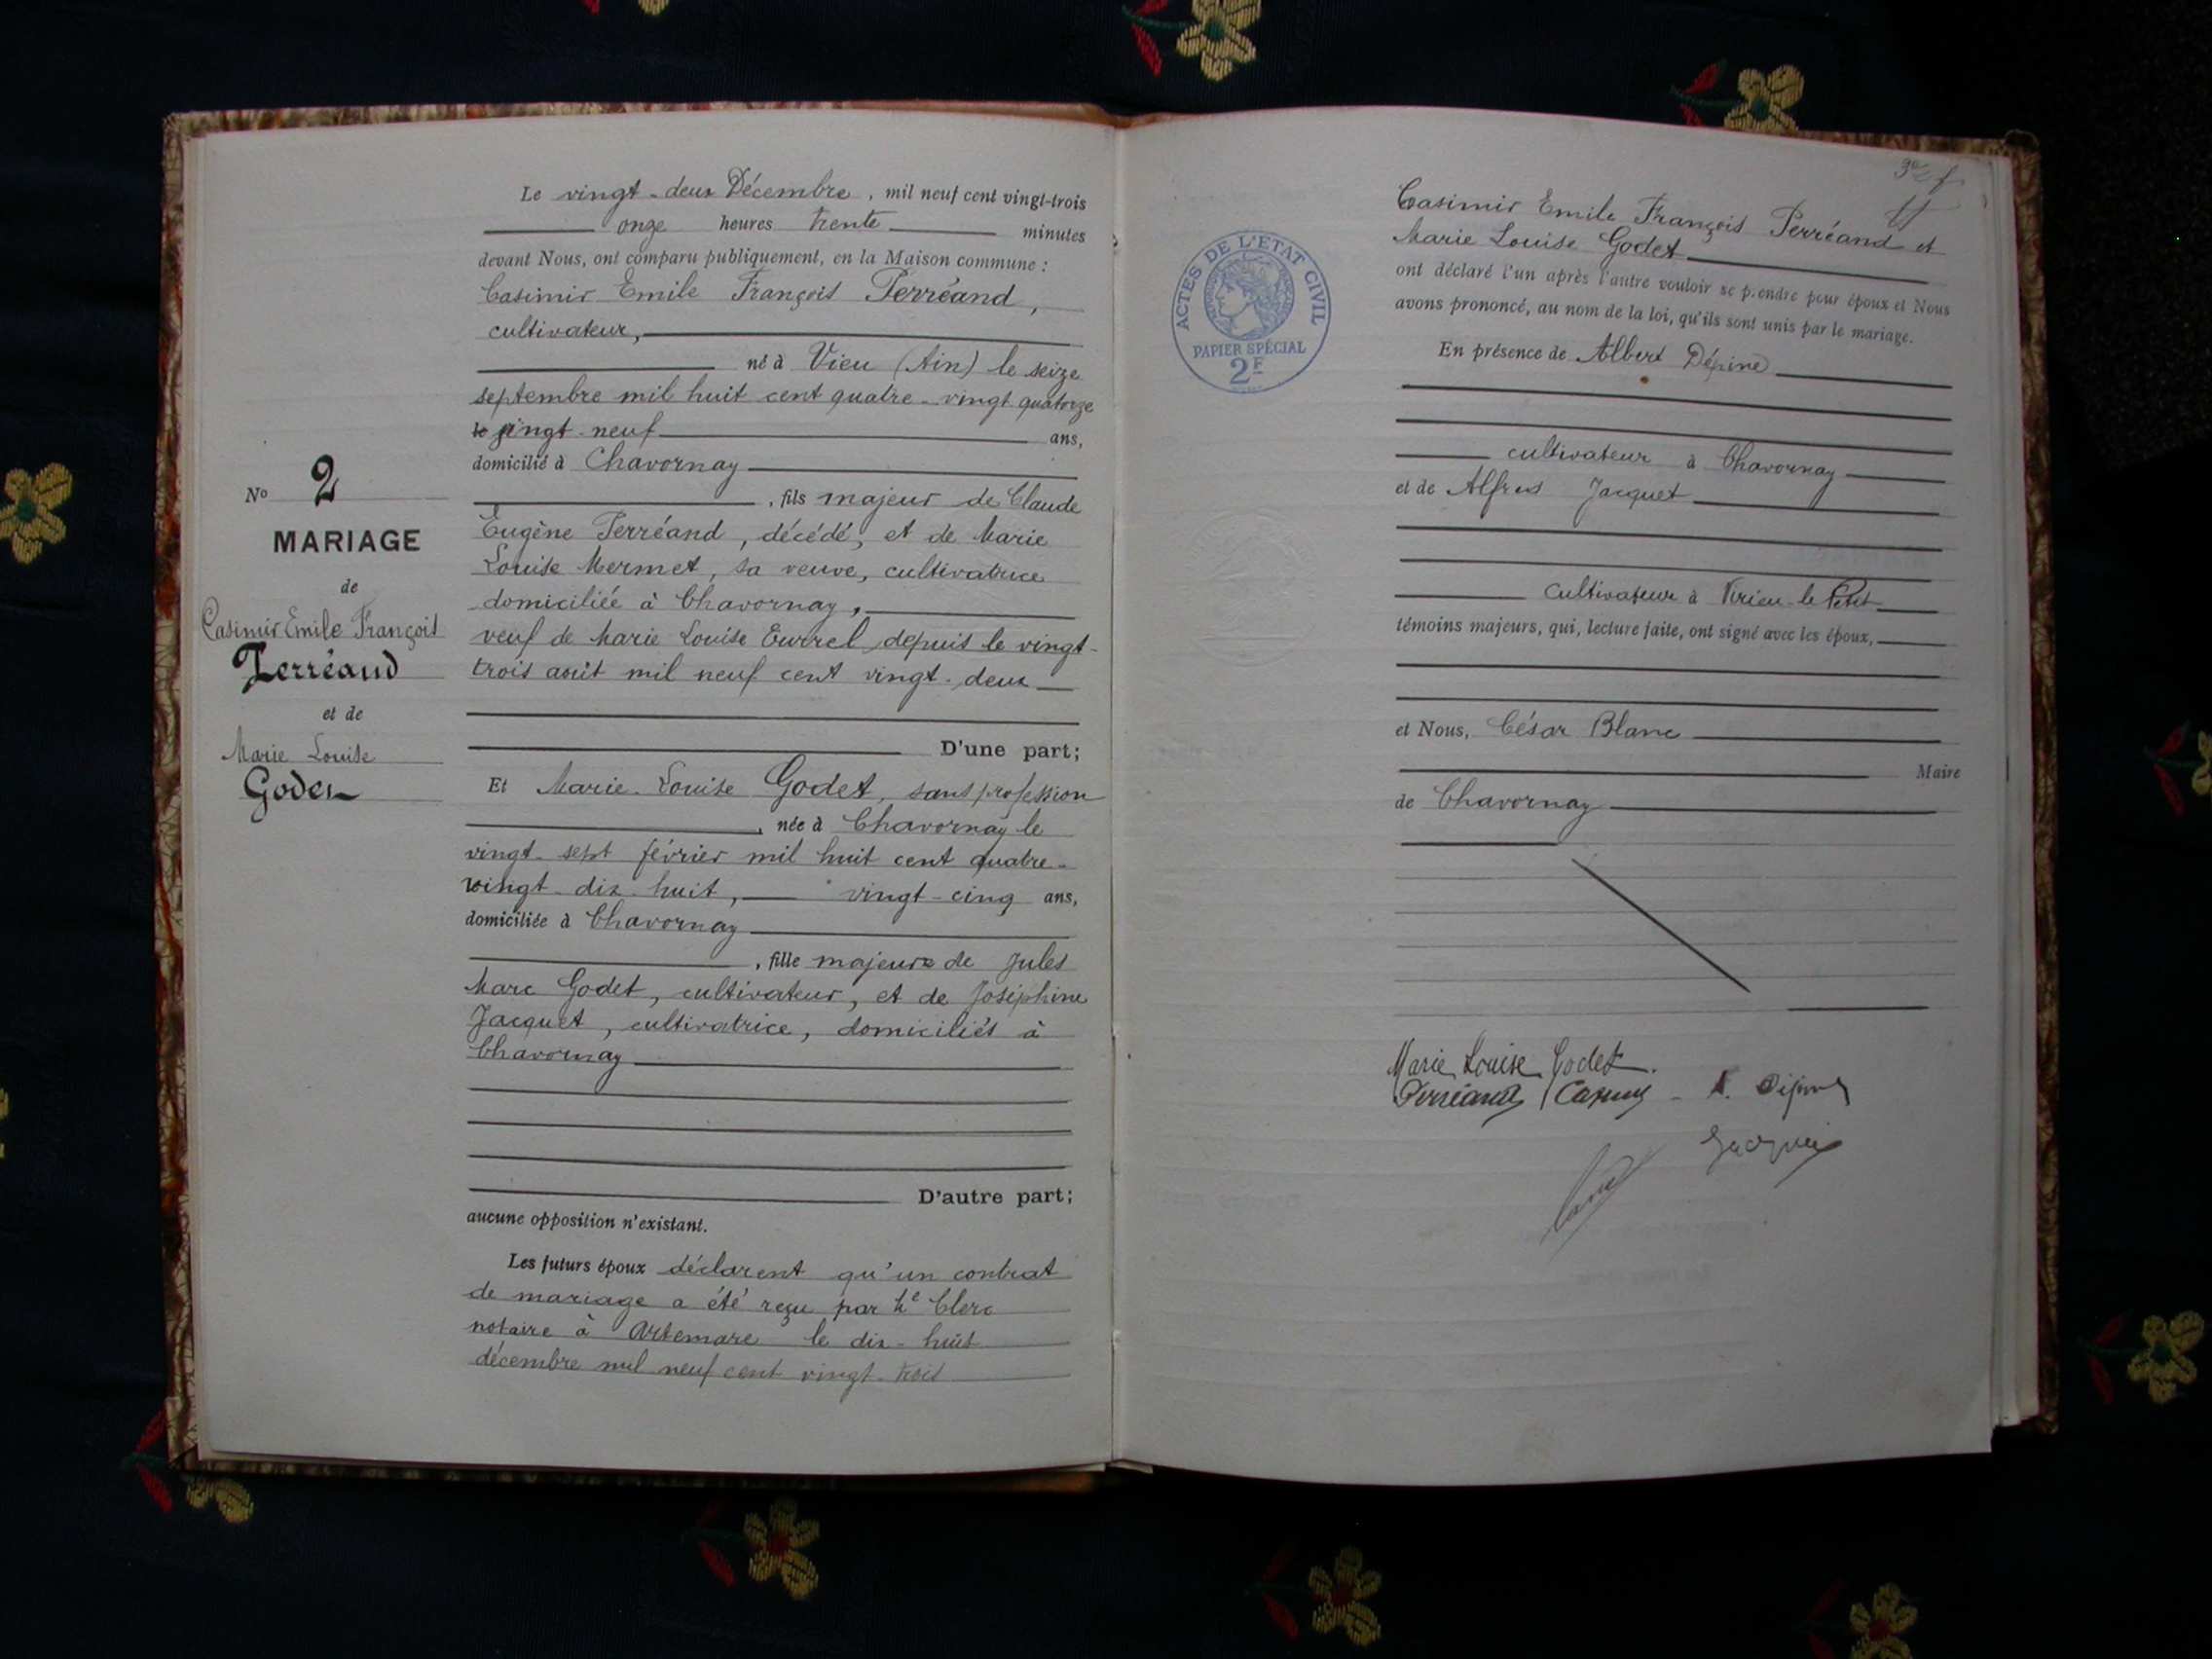 Le vingt-deux Décembre, mil neuf cent vingt-trois
onze heures trente minutes
devant Nous, ont comparu publiquement, en la Maison commune :
Casimir Emile François Perréand,
cultivateur,
né à Vieu (Ain) le seize
septembre mil huit cent quatre-vingt quatorze
vingt-neuf ans,
domicilié à Chavornay
, fils majeur de Claude
Eugène Perréand, décédé, et de Marie
Louise Mermet, sa veuve, cultivatrice
domiciliée à Chavornay,
veuf de Marie Louise depuis le vingt-
trois août mil neuf cent vingt-deux
D'une part;
Et Marie-Louise Godet, sans profession
, née à Chavornay le
vingt-sept février mil huit cent quatre-
vingt-dix-huit, vingt-cinq ans,
domiciliée à Chavornay
, fille majeure de Jules
Marc Godet, cultivateur, et de Joséphine
Jacquet, cultivatrice, domiciliés à
Chavornay
D'autre part;
aucune opposition n'existant.
Les futurs époux déclarent qu'un contrat
de mariage a été reçu par Me Clerc
notaire à Artemare le dix-huit
décembre mil neuf cent vingt-trois
No 2
MARIAGE
de
Casimir Emile François
Perréand
et de
Marie Louise
Godet
ACTES DE L'ETAT CIVIL
PAPIER SPÉCIAL
2F
Casimir Emile François Perréand et
Marie Louise Godet
ont déclaré l'un après l'autre vouloir se prendre pour époux et Nous
avons prononcé, au nom de la loi, qu'ils sont unis par le mariage.
En présence de Albert Dépine
cultivateur à Chavornay
et de Alfred Jacquet
cultivateur à Virieu-le-Petit
témoins majeurs, qui, lecture faite, ont signé avec les époux,
et Nous, César Blanc
Maire
de Chavornay
Marie Louise Godet.
Perréand Casimir - A. Dépine
Jacquet